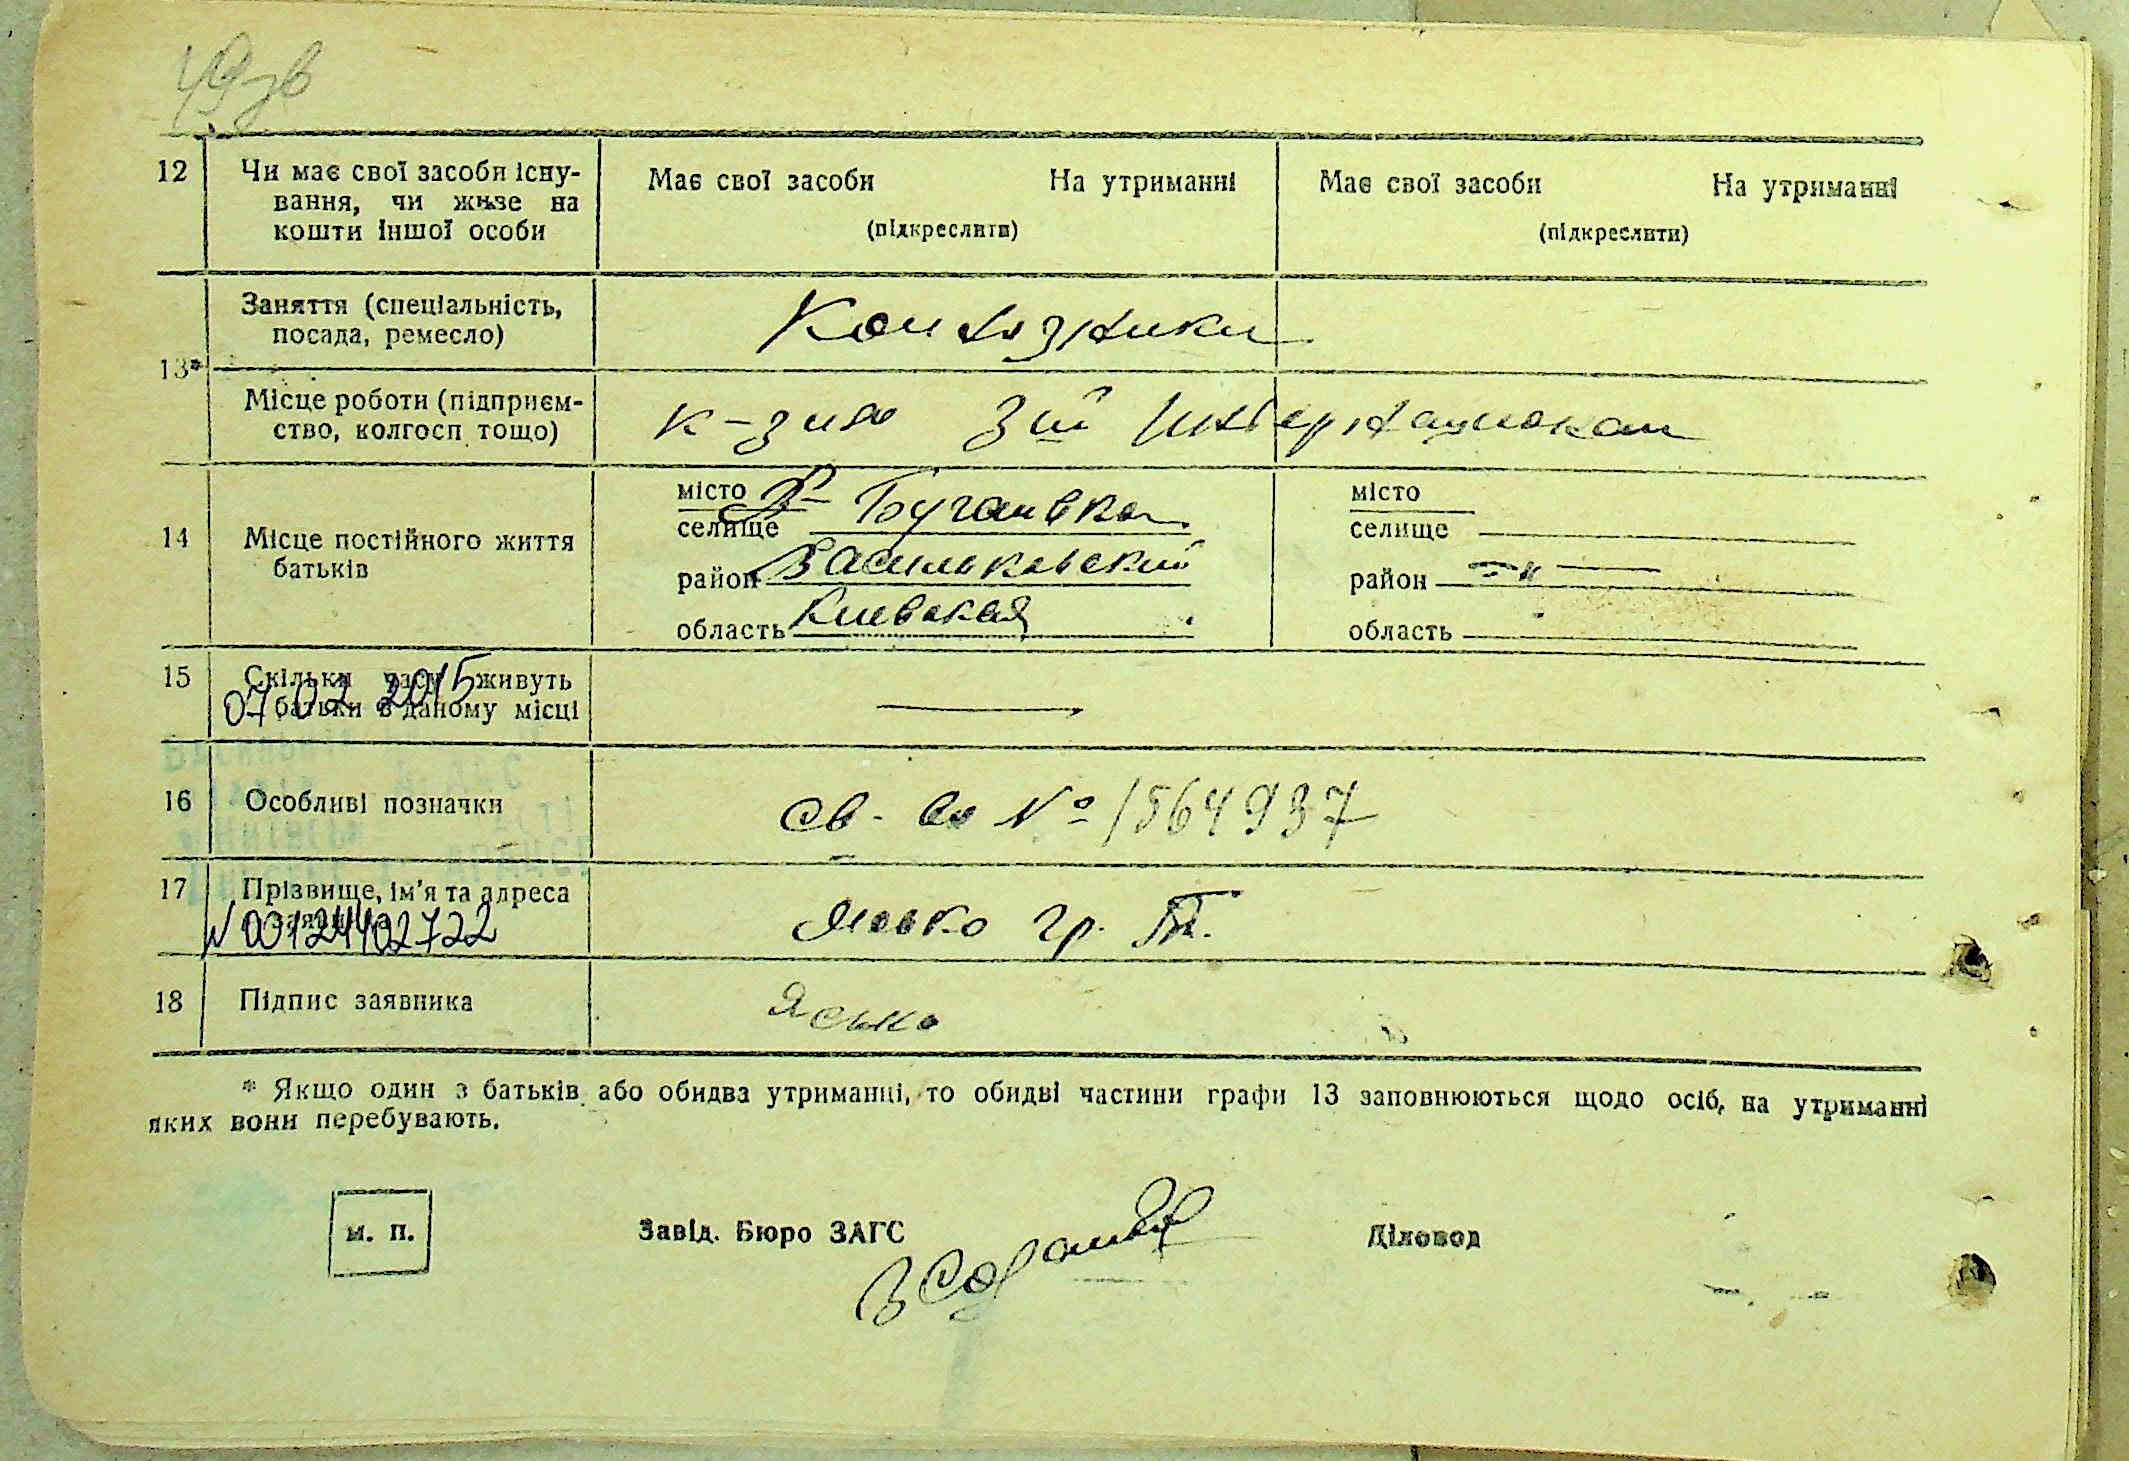 49 зв
12 Чи має свої засоби існу-
вання, чи живе на
кошти іншої особи
Має свої засоби На утриманні
(підкреслити)
Має свої засоби На утриманні
(підкреслити)
13*
Заняття (спеціальність,
посада, ремесло)
Колхозники
Місце роботи (підприєм-
ство, колгосп тощо)
к-з им 3й Интернационал
14 Місце постійного життя
батьків
місто
селище Бугаевка
район Васильковский
область Киевская
місто
селище
район —"—
область
15 Скільки часу живуть
батьки в даному місці
07 02 2015
16 Особливі позначки
св-во № 1564937
17 Прізвище, ім'я та адреса
N 00124402722
Ясько гр.
18 Підпис заявника
Ясько
* Якщо один з батьків або обидва утриманці, то обидві частини графи 13 заповнюються щодо осіб, на утриманні
яких вони перебувають.
м. п.
Завід. Бюро ЗАГС
Діловод